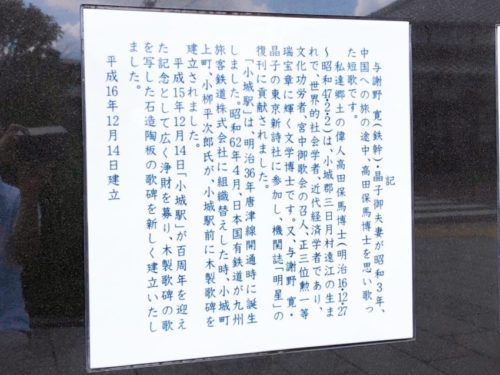 記
与謝野 寛(鉄幹)・晶子御夫妻が昭和3年、
中国への旅の途中、高田保馬博士を思い歌っ
た短歌です。
私達郷土の偉人高田保馬博士(明治16・12・27
～昭和47・2・2)は、小城郡三日月村遠江の生ま
れで、世界的社会学者、近代経済学者であり、
文化功労者、宮中御歌会の召人、正三位勲一等
瑞宝章に輝く文学博士です。又、与謝野 寛・
晶子の東京新詩社に参加し、機関誌「明星」の
復刊に貢献されました。
「小城駅」は、明治36年唐津線開通時に誕生
しました。昭和62年4月、日本国有鉄道が九州
旅客鉄道株式会社に組織替えした時、小城町
上町、小栁平次郎氏が、小城駅前に木製歌碑を
建立されました。
平成15年12月14日「小城駅」が百周年を迎え
た記念として広く浄財を募り、木製歌碑の歌
を写した石造陶板の歌碑を新しく建立いたし
ました。
平成16年12月14日建立